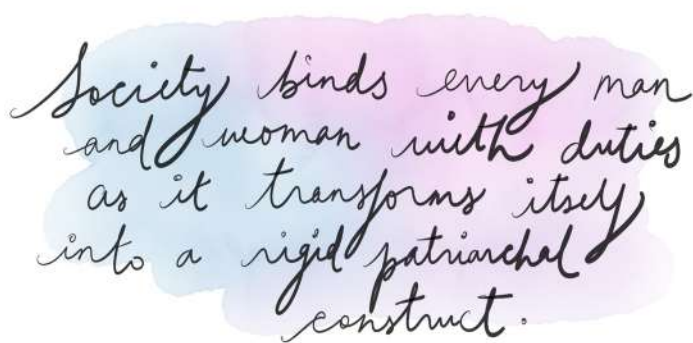 Society binds every man
and woman with duties
as it transforms itself
into a rigid patriarchal
construct.